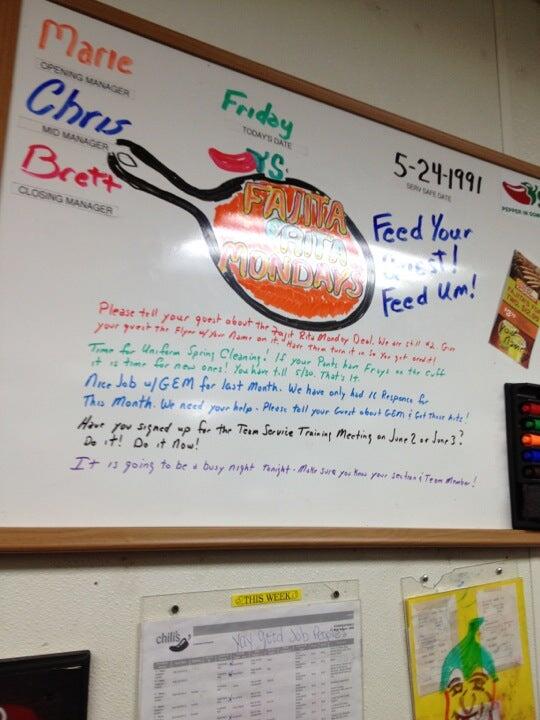 Marie
OPENING MANAGER
Chris
MID MANAGER
Brett
CLOSING MANAGER
Friday
TODAY'S DATE
YS:
5-24-1991
SERV SAFE DATE
FAJITA
RITA
MONDAYS
Feed Your
Guest!
Feed Um!
Please tell your guest about the Fajit Rita Monday Deal. We are still #2. Give
your guest the Flyer w/Your Name on it. Have them turn it in So You get credit!
Time for Uniform Spring Cleaning! If your Pants han Frays on the cuff
it is time for new ones! You have till 5/30. That's it.
Nice Job w/GEM for last Month. We have only had 16 Response for
This Month. We need your help. Please tell your Guest about GEM & Get those hits!
Have you signed up for the Team Service Training Meeting on June 2 or June 3?
Do it! Do it Now!
It is going to be a busy night tonight. Make sure you know your section & Team Member!
THIS WEEK
chili's
Yay good Job Peoples